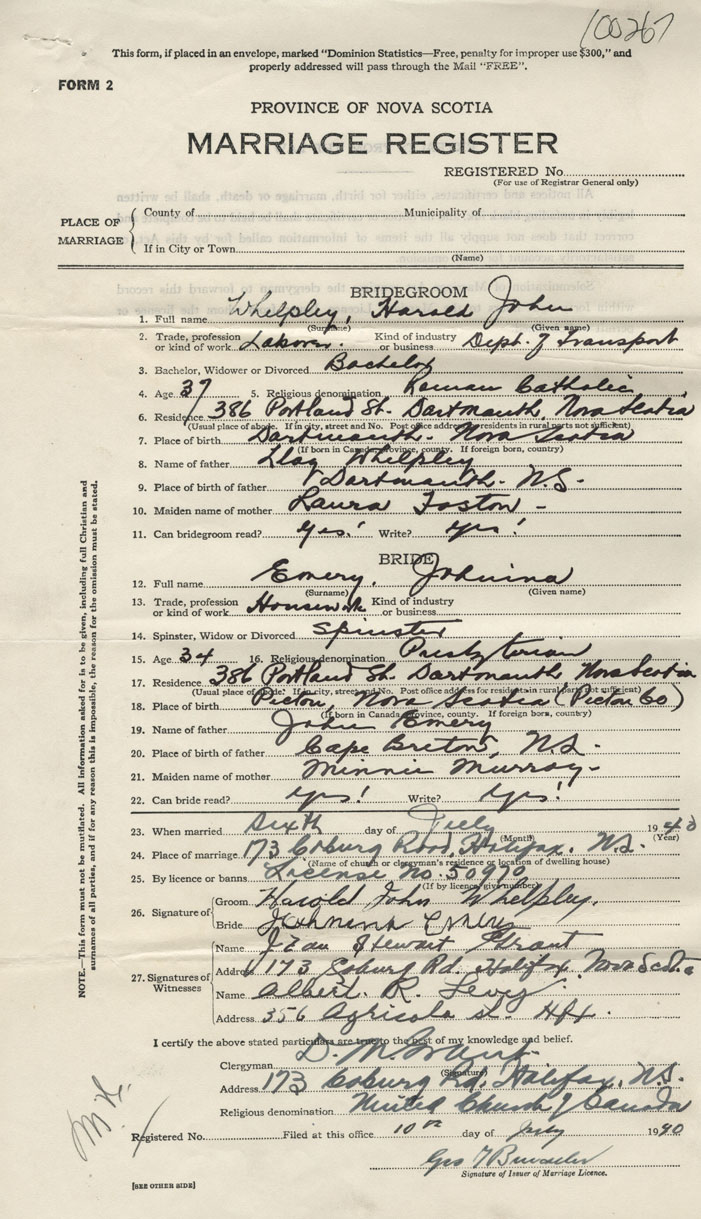 100267
This form, if placed in an envelope, marked "Dominion Statistics—Free, penalty for improper use $300," and
properly addressed will pass through the Mail "FREE".
FORM 2
PROVINCE OF NOVA SCOTIA
MARRIAGE REGISTER
REGISTERED No.
(For use of Registrar General only)
PLACE OF MARRIAGE
County of Municipality of
If in City or Town
(Name)
BRIDEGROOM
1. Full name Whelpley, Harold John
(Surname) (Given name)
2. Trade, profession or kind of work Laborer. Kind of industry or business Dept. of Transport
3. Bachelor, Widower or Divorced Bachelor
4. Age 37 5. Religious denomination Roman Catholic
6. Residence 386 Portland St. Dartmouth, Nova Scotia
(Usual place of abode. If in city, street and No. Post office address for residents in rural parts not sufficient)
7. Place of birth Dartmouth. Nova Scotia
(If born in Canada, province, county. If foreign born, country)
8. Name of father Whelpley
9. Place of birth of father Dartmouth. N.S.
10. Maiden name of mother Laura
11. Can bridegroom read? Yes! Write? Yes!
BRIDE
12. Full name Emery, Johnina
(Surname) (Given name)
13. Trade, profession or kind of work Housewk Kind of industry or business
14. Spinster, Widow or Divorced Spinster
15. Age 34 16. Religious denomination Presbyterian
17. Residence 386 Portland St. Dartmouth, Nova Scotia
(Usual place of abode. If in city, street and No. Post office address for residents in rural parts not sufficient)
18. Place of birth Pictou, Nova Scotia (Pictou Co)
(If born in Canada, province, county. If foreign born, country)
19. Name of father John Emery
20. Place of birth of father Cape Breton, N.S.
21. Maiden name of mother Minnie Murray
22. Can bride read? Yes! Write? Yes!
23. When married Sixth day of July 1940
(Month) (Year)
24. Place of marriage 173 Coburg Road, Halifax, N.S.
(Name of church or clergyman's residence or location of dwelling house)
25. By licence or banns License No. 50970
(If by licence give number)
26. Signature of
Groom Harold John Whelpley.
Bride Johnina Emery
27. Signatures of Witnesses
Name Jean Stewart Grant
Address 173 Coburg Rd. Halifax, Nova Scotia
Name Albert R. Levy
Address 356 Agricola st. Hfx
I certify the above stated particulars are true to the best of my knowledge and belief.
Clergyman D. M. Grant
(Signature)
Address 173 Coburg Rd, Halifax, N.S.
Religious denomination United Church of Canada
Registered No. Filed at this office 10th day of July 1940
Geo
Signature of Issuer of Marriage Licence.
[SEE OTHER SIDE]
NOTE.—This form must not be mutilated. All information asked for is to be given, including full Christian and
surnames of all parties, and if for any reason this is impossible, the reason for the omission must be stated.